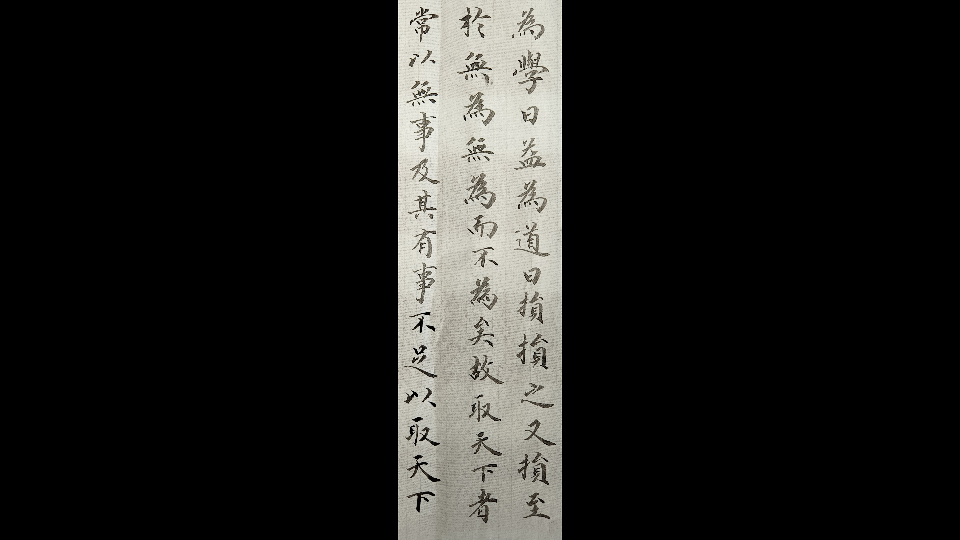 為學日益為道日損損之又損至
於無為無為而不為矣故取天下者
常以無事及其有事不足以取天下